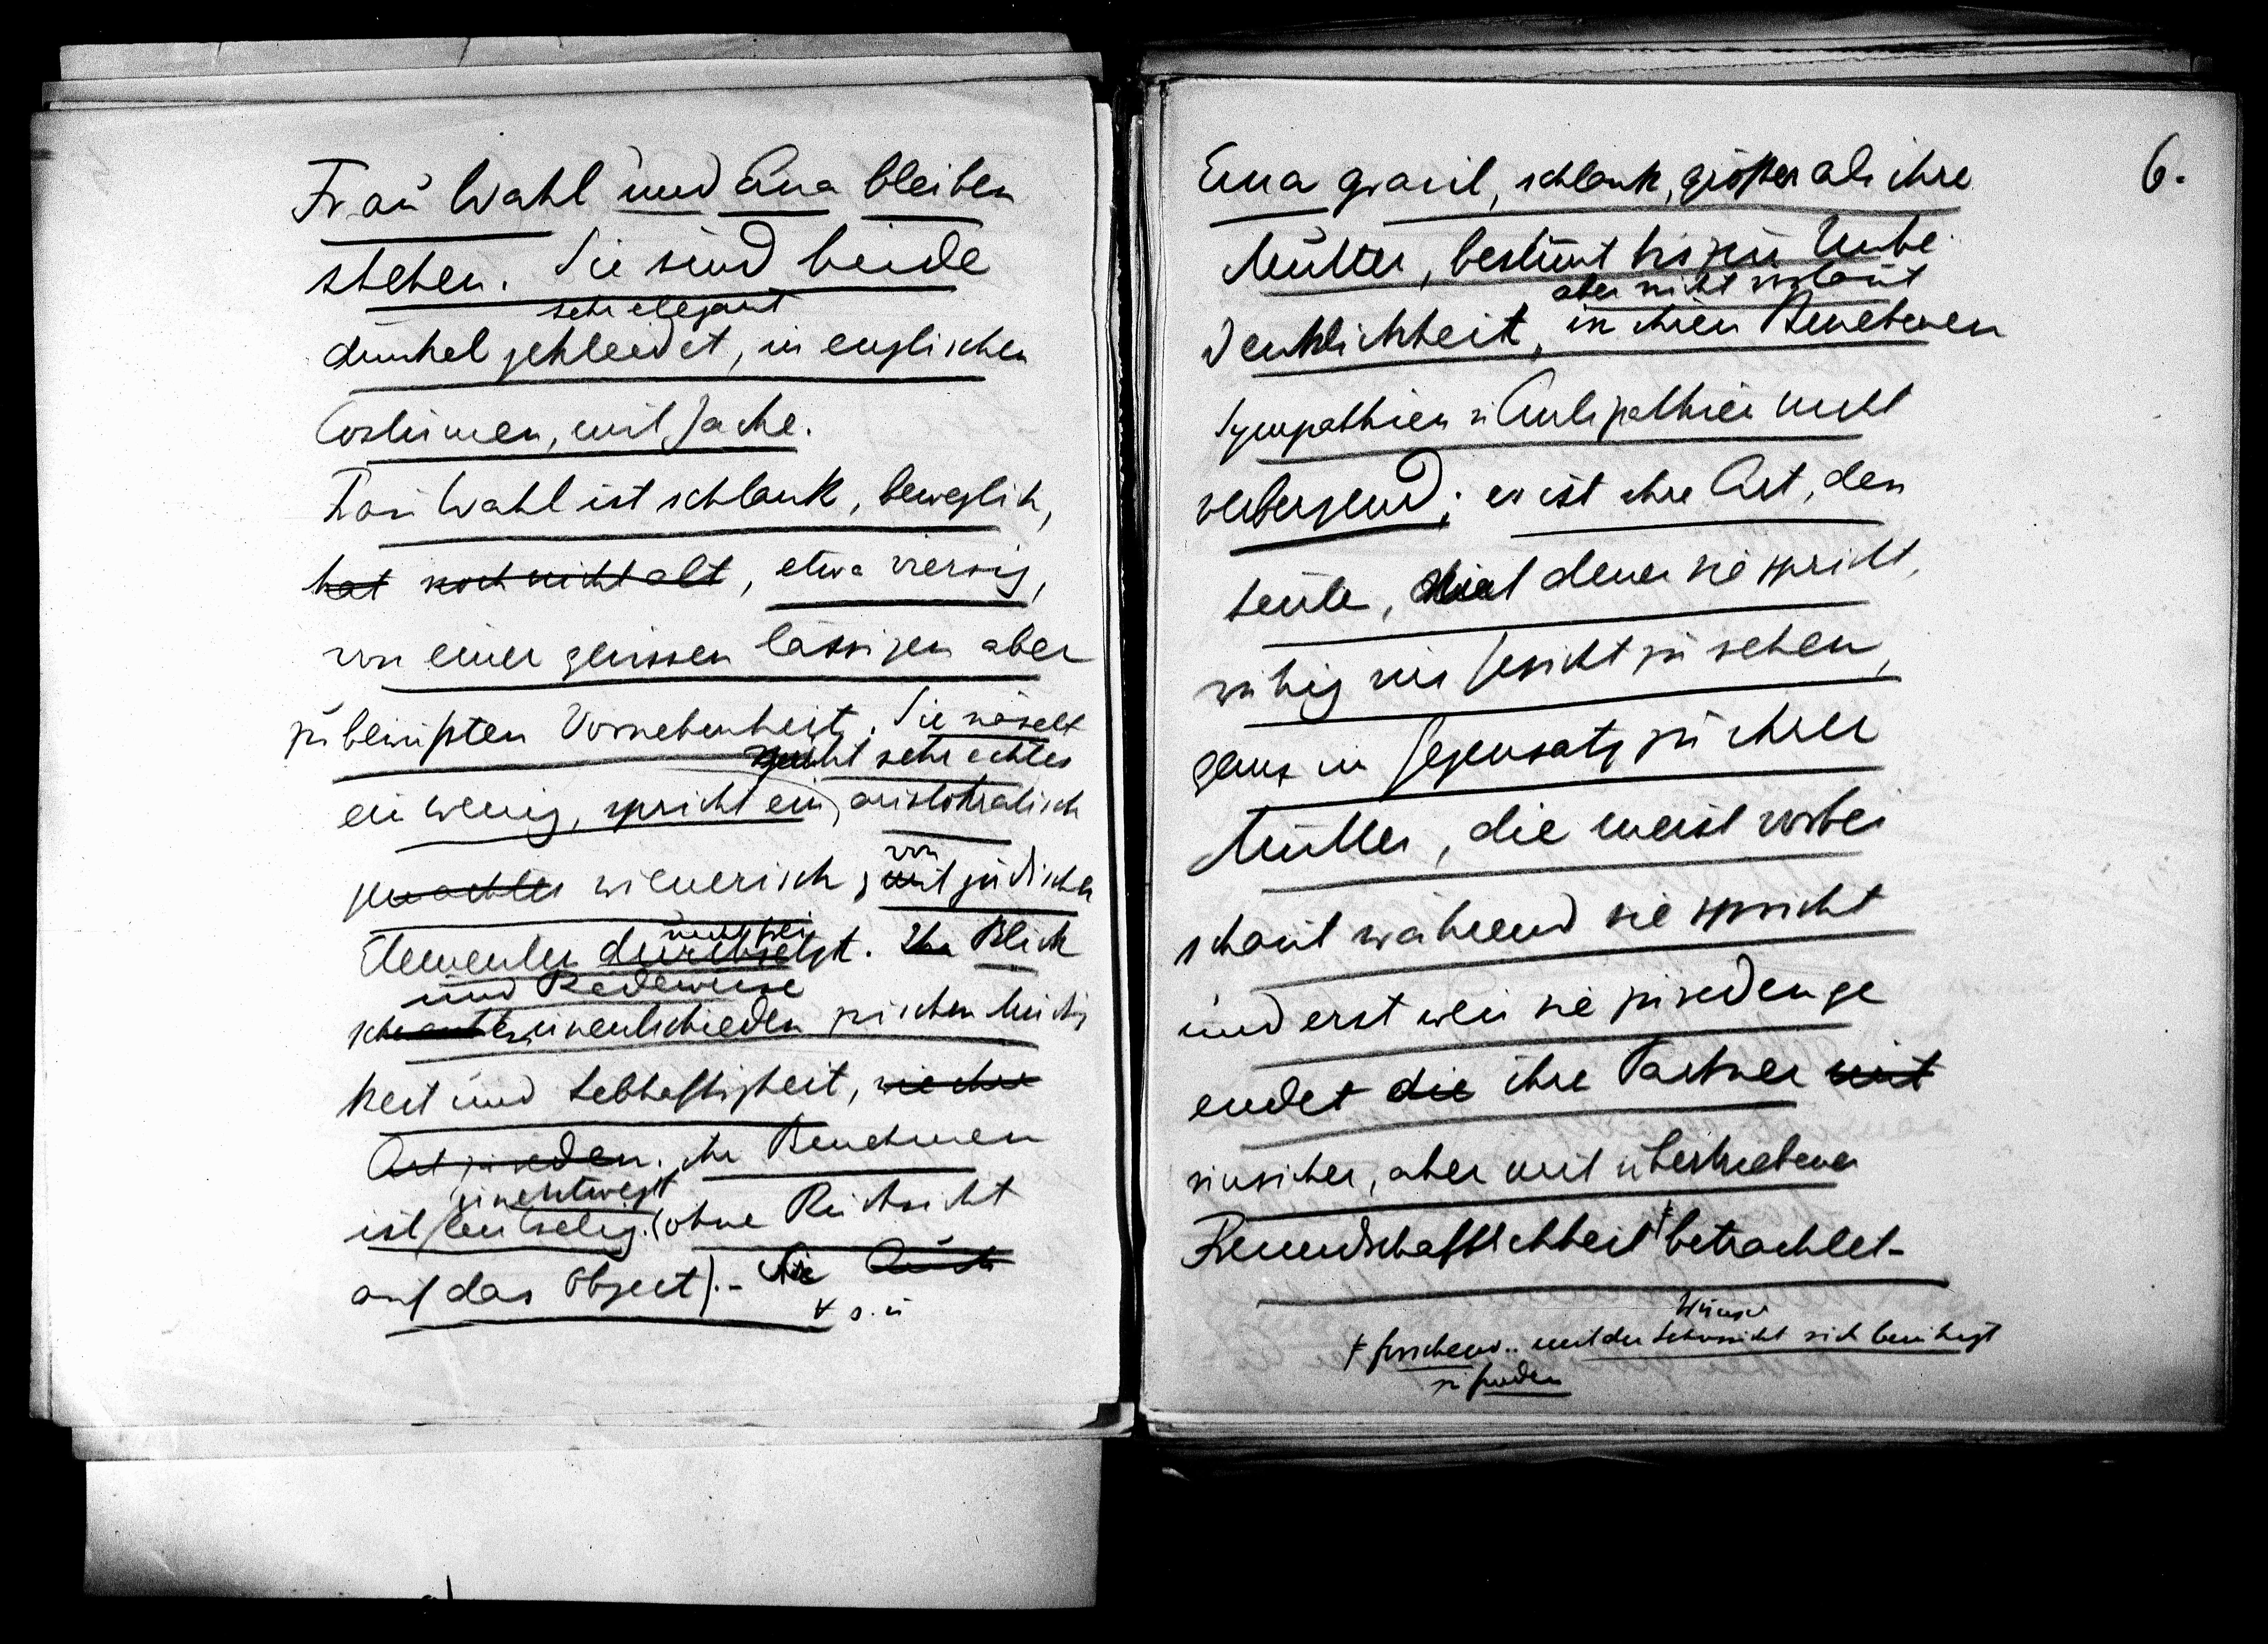 Frau Wahl und Erna bleiben
stehen. Sie sind beide
sehr elegant
dunkel gekleidet, in englischen
Costümen, mit Jacke.
Frau Wahl ist schlank, beweglich,
hat noch nicht alt, etwa vierzig,
von einer gewissen lässigen aber
zu bewußten Vornehmheit. Sie näselt
nicht sehr echtes
ein wenig, spricht ein aristokratisch
gemachtes wienerisch, mit jüdischen
von
Elementen durchsetzt. Ihr Blick
nicht frei
und Redeweise
unentschieden zwischen Müdig
keit und Lebhaftigkeit, wie ihre
Art zu reden. Ihr Benehmen
unentwegt
ist leutselig. (ohne Rücksicht
auf das Object).- Sie
s. ü
6.
Erna grazil, schlank, größer als ihre
Mutter, bestimt bis zur Unbe
aber nicht vorlaut
denklichkeit, in ihren Benehmen
Sympathien u Antipathien nicht
verbergend; es ist ihre Art, den
Leuten, mit denen sie spricht,
ruhig ins Gesicht zu sehen,
ganz im Gegensatz zu ihrer
Mutter, die meist vorbei
schaut während sie spricht
und erst wen sie zu reden ge
endet die ihre Partner mit
unsicher, aber mit übertriebener
Freundschaftlichkeit betrachtet-
Wunsch
forschend.. mit der Sehnsucht sich beruhigt
zu finden